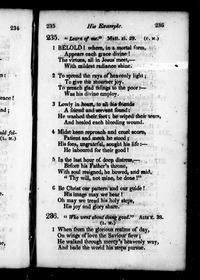 235 His Example. 236
235. "Learn of me." Matt. xi. 29. (C. M.)
1 BEHOLD! where, in a mortal form,
Appears each grace divine!
The virtues, all in Jesus met,—
With mildest radiance shine.
2 To spread the rays of heavenly light;
To give the mourner joy,
To preach glad tidings to the poor;—
Was his divine employ.
3 Lowly in heart, to all his friends
A friend and servant found:
He washed their feet; he wiped their tears,
And healed each bleeding wound.
4 Midst keen reproach and cruel scorn,
Patient and meek he stood;
His foes, ungrateful, sought his life:—
He laboured for their good!
5 In the last hour of deep distress,
Before his Father's throne,
With soul resigned, he bowed, and said,
"Thy will, not mine, be done!"
6 Be Christ our pattern and our guide!
His image may we bear!
Oh may we tread his holy steps,
His joy and glory share.
236. "Who went about doing good." Acts x. 38.
(L. M.)
1 When from the glorious realms of day,
On wings of love the Saviour flew;
He walked through mercy's heavenly way,
And bade the world his steps pursue.